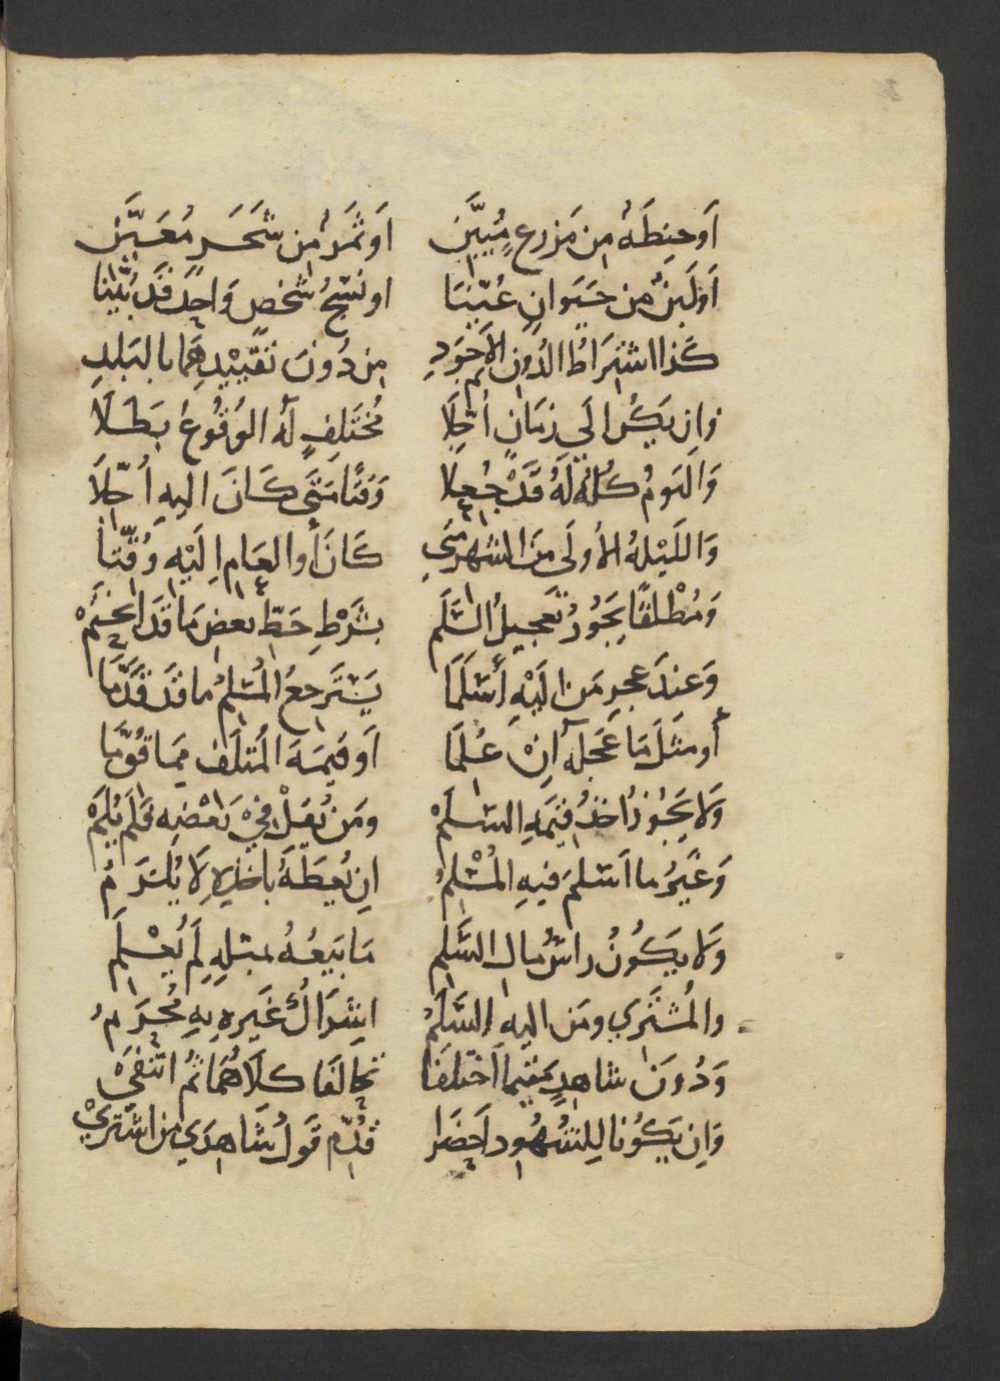 اَو حِنطَةٌ مِن مَزرعٍ مُبَيَّنِ اَو ثَمَرٌ مِن شَجَرٍ مُعَيَّنِ
اَو لَبَنٌ مِن حَيَوانٍ عُيِّنَا او نَسْجُ شَخصٍ وَاحِدٍ قَد بُيِّنا
كَذا اشتِراطُ الدُونِ الاَجوَدِ مِن دُونَ تَقيِيْدِهِمَا بالبَلَدِ
وَاِن يَكُن الَي زمَانٍ اُجِّلَا مُختَلِفٍ لَهُ الوُقُوعُ بَطَلَا
وَاليَومُ كلُّهُ لَهُ قَدْ جُعِلا وَقتًا مَتَي كَانَ اليهِ اُجِّلَا
وَاللَيْلَةُ الأُولَى مِنَ الشهرِ مَتَي كَانَ أوالعَامِ اِلَيْهِ وُقِّتا
وَمُطْلَقًا يَجُوزُ تَعجِيلُ السَّلَم بشَرْطِ حَطِّ بعضِ مَا قَد انحَتَمْ
وَعندَ عجزِ مَن اِلَيْهِ أَسْلَمَا يَسْتَرجعُ المُسْلِمُ ماقَد قَدَّمَا
أو مثَلَ مَا عَجَّلَهُ اِنْ عُلمَا اَو قيمَةَ المُتلَف مِمَا قُوِّمَا
وَلا يَجُوزُ اَخذُ قِيمَةِ السَلَمْ ومَن يُقِلْ فِيْ بَعْضِهِ فلَم يُلَمْ
وَغَيرُ ما اَسْلَمَ فيهِ المُسْلِمُ اِن يُعطَهُ بأخذِهِ لا يُلزَمُ
وَلا يكُونُ راسُ مالِ السَّلَمِ مَا بَيعُهُ بمثلِهِ لَم يُعْلَمِ
والمُشتَرِي ومَن اليهِ السَّلَمْ اِشرَاكُ غَيرِهِ بِهِ مُحَرَّمُ
وَدُونَ شاهِدٍ متَيما اختَلَفَا تحَالَفَا كلَاهُمَا ثُمَ انتَفَي
وَاِن يَكُونا لِلشهُودِ اَحضَرا قُدِّم قَولُ شَاهِدَي مَن اشتَريْ